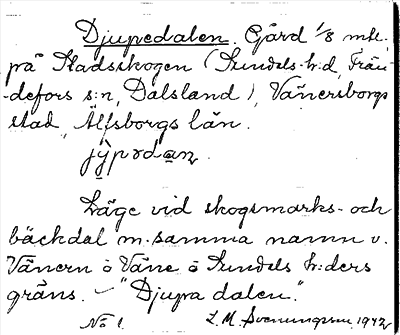 Djupedalen. Gård 1/8 mtl.
på Stadsskogen (Sundals h:d, Frän-
defors s:n, Dalsland), Vänersborgs
stad, Älfsborgs län.
jy̠pəda̠n.
Läge vid skogsmarks- och
bäckdal m. samma namn v.
Vänern å Väne å Sundals h:ders
gräns. - "Djupa dalen."
No 1. L. M. Svenungsson 1942